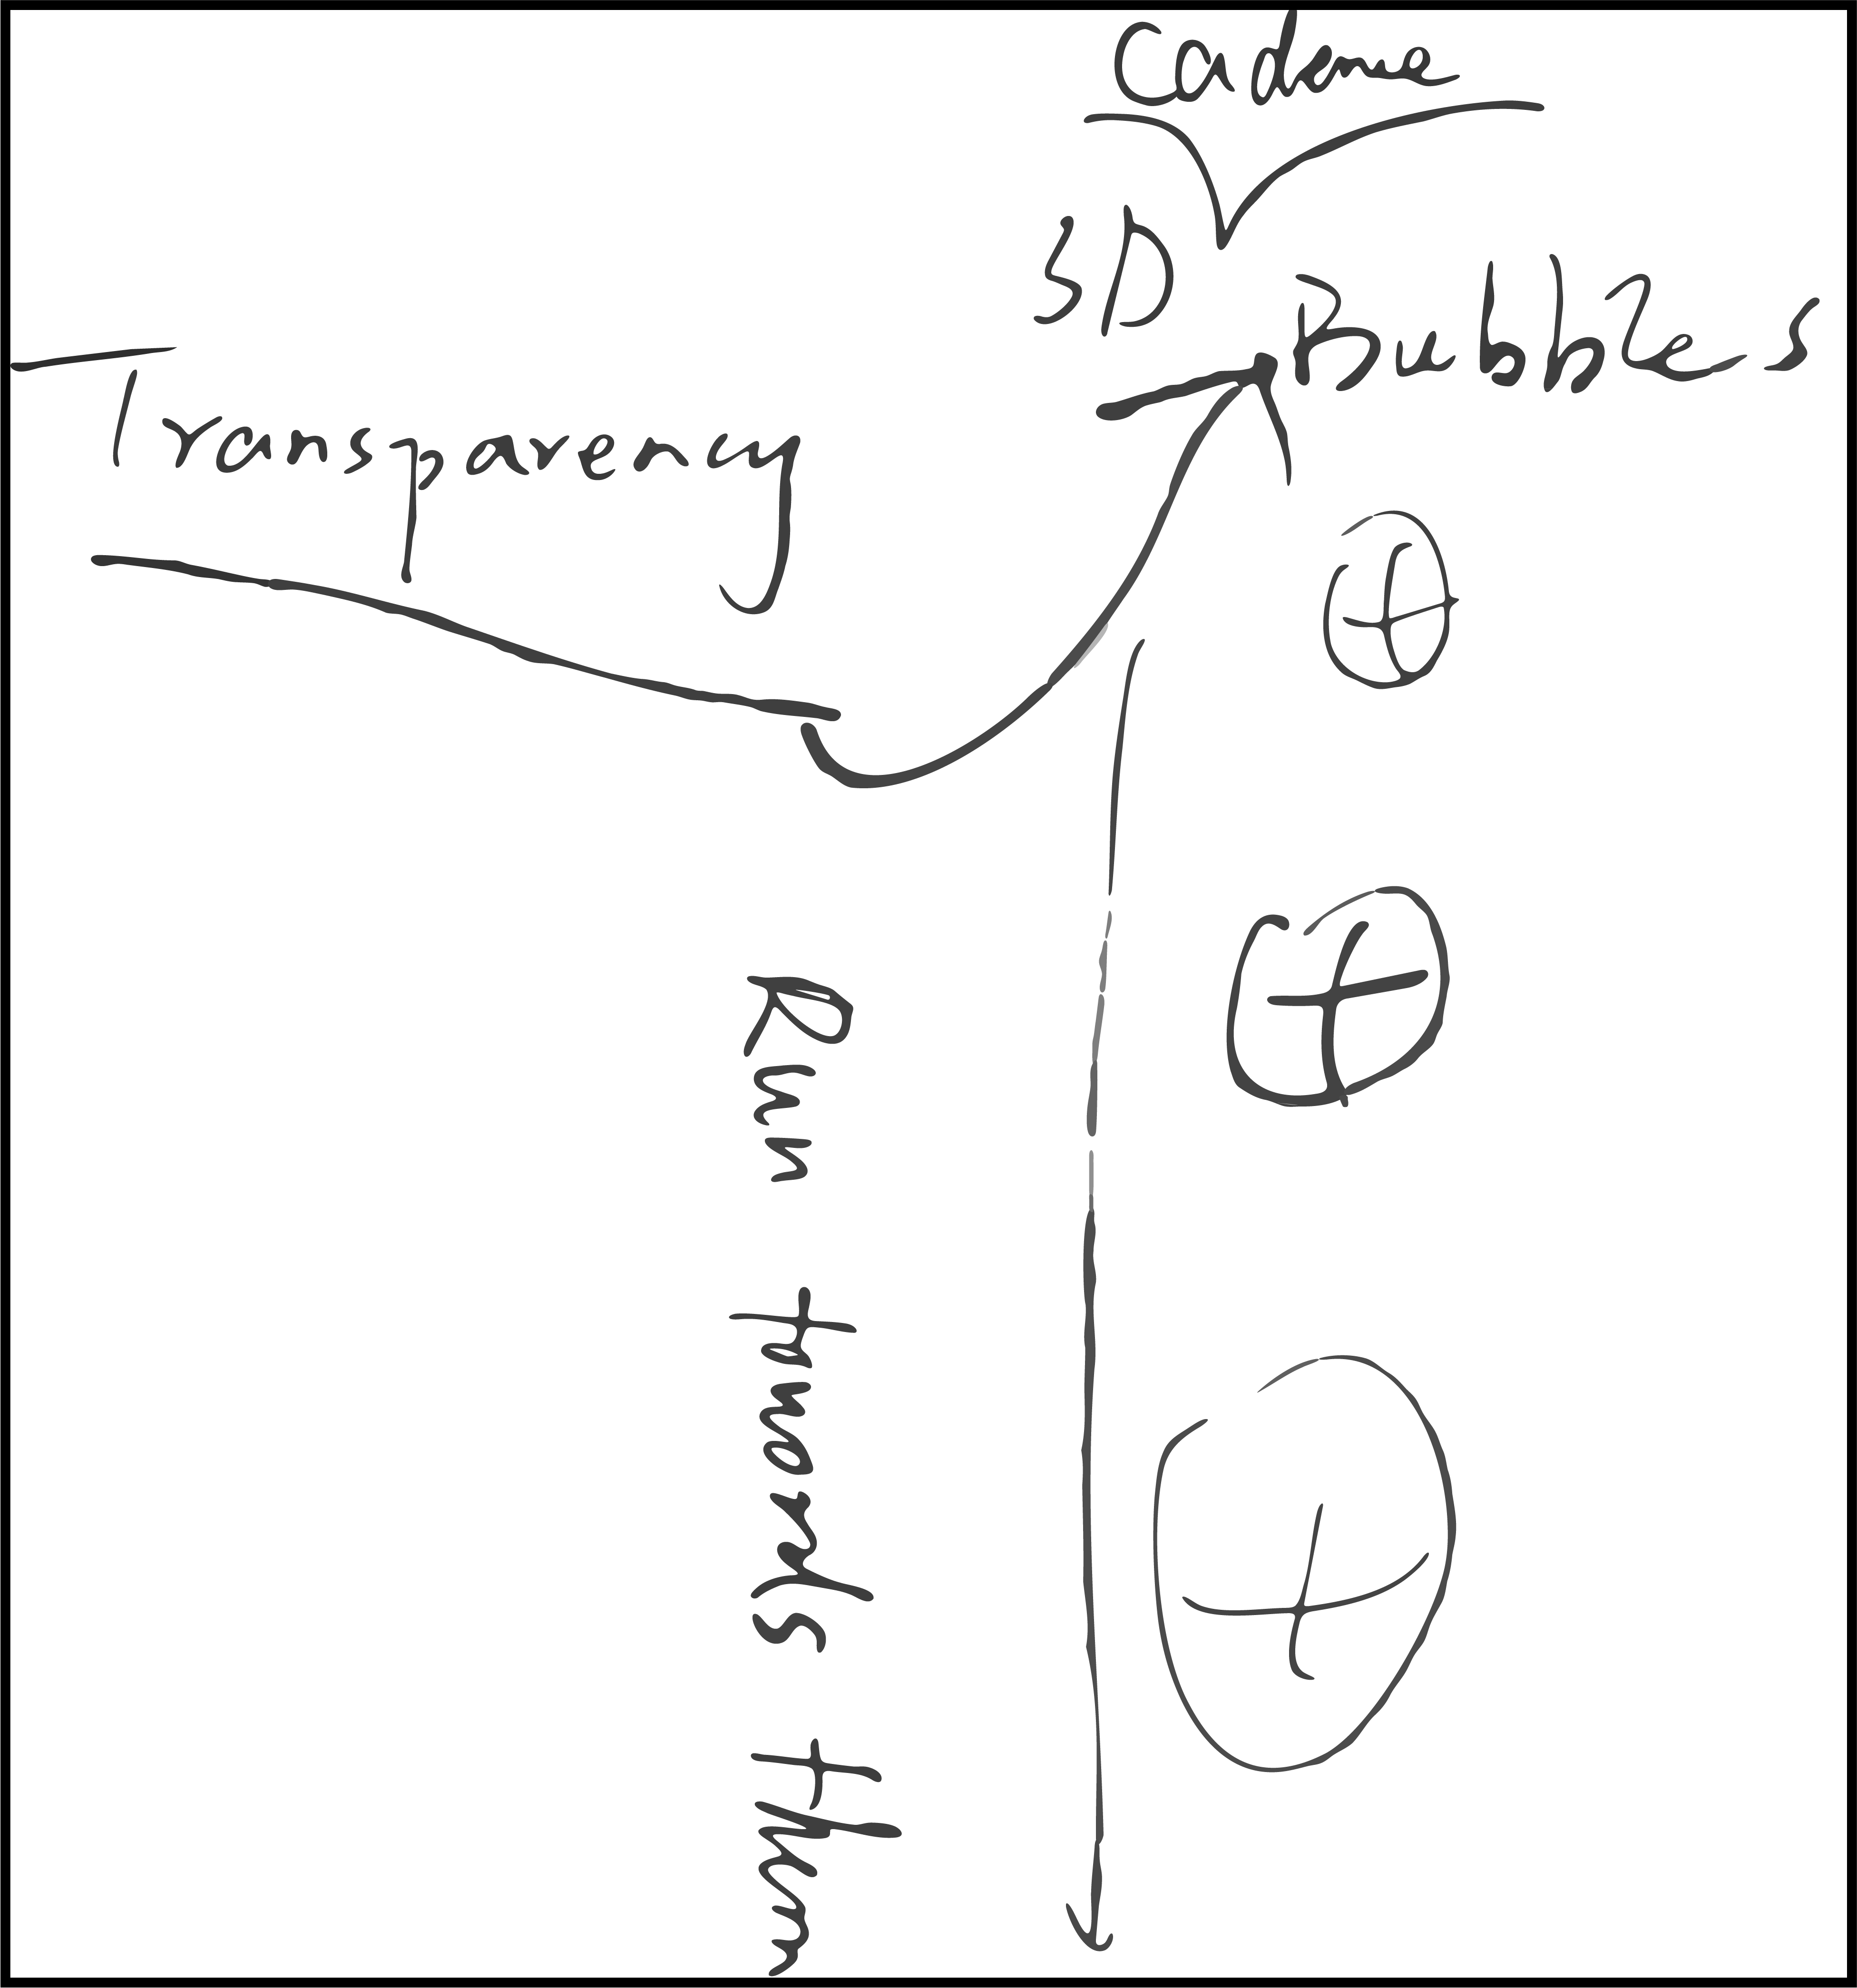 3D Bubbles
Transparency
Run towards them